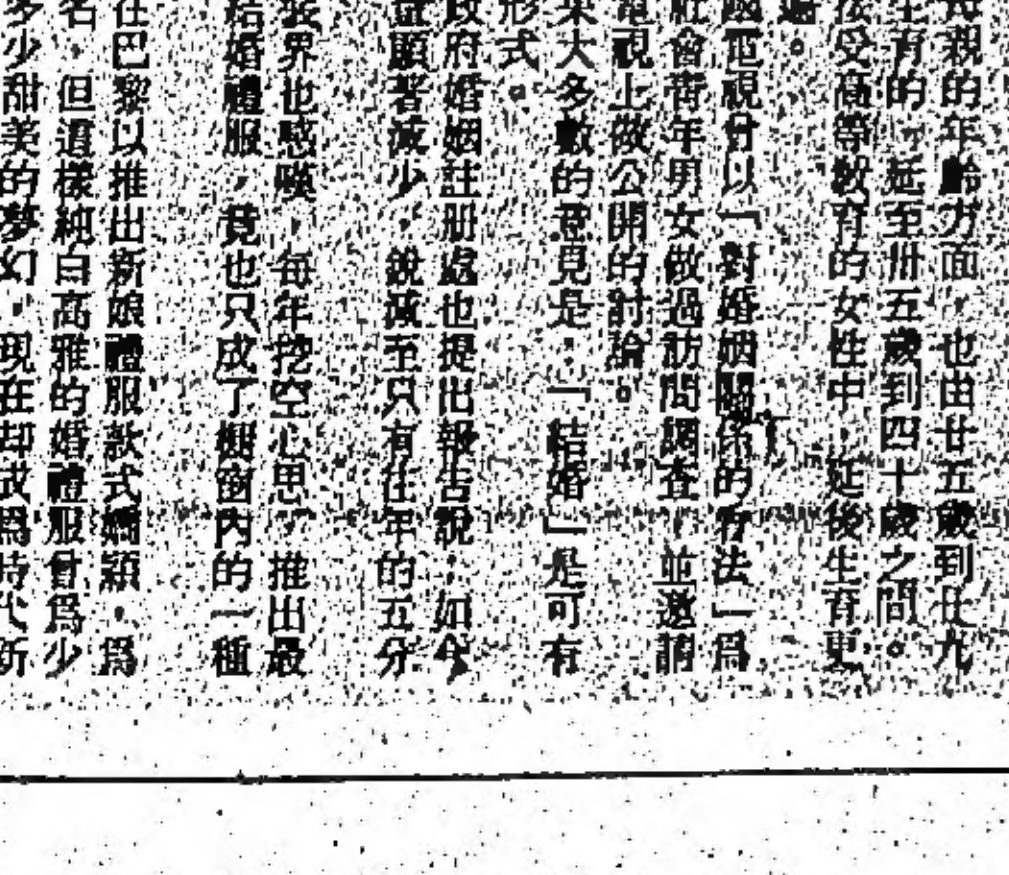 母親的年齡方面，也由廿五歲到廿九
生育的，延至卅五歲到四十歲之間。
接受高等教育的女性中，延後生育更
。
國電視曾以「對婚姻關係的看法」爲
社會青年男女做過訪問調查，並邀請
電視上做公開的討論。
果大多數的意見是：「結婚」是可有
形式。
政府婚姻註册處也提出報告說：如今
顯著減少，銳減至只有往年的五分
裝界也感嘆，每年挖空心思，推出最
結婚禮服，竟也只成了櫥窗內的一種
在巴黎以推出新娘禮服款式嬌穎，爲
名，但這樣純白高雅的婚禮服曾爲少
多少甜美的夢幻，現在却成爲時代新